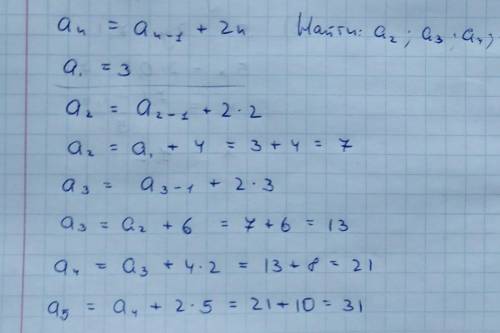 aₙ = aₙ₋₁ + 2n Найти: a₂; a₃; a₄;
a₁ = 3
a₂ = a₂₋₁ + 2·2
a₂ = a₁ + 4 = 3 + 4 = 7
a₃ = a₃₋₁ + 2·3
a₃ = a₂ + 6 = 7 + 6 = 13
a₄ = a₃ + 4·2 = 13 + 8 = 21
a₅ = a₄ + 2·5 = 21 + 10 = 31